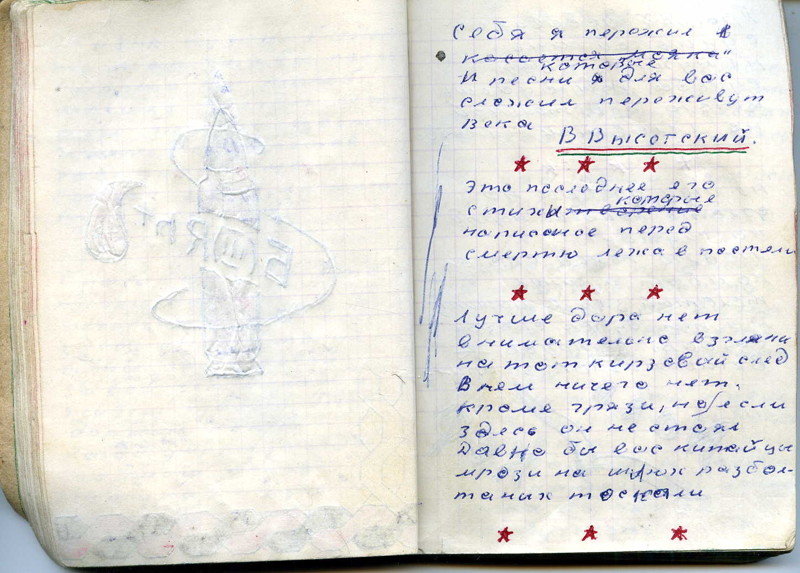 Себя я пережил в
косается "мояка"
которые
И песни я для вас
сложил переживут
века
В Высотский.
Это последнее его
которые
стихи творение
написаное перед
смертю лежа в постели
Лучше дара нет
внимательно взгляни
на тот кирзовай след
В нем ничего нет.
кроме грязи, но если
здесь он не стоял
Давно бы вас китайцы
мрази на шлюх разбол-
таних таскали